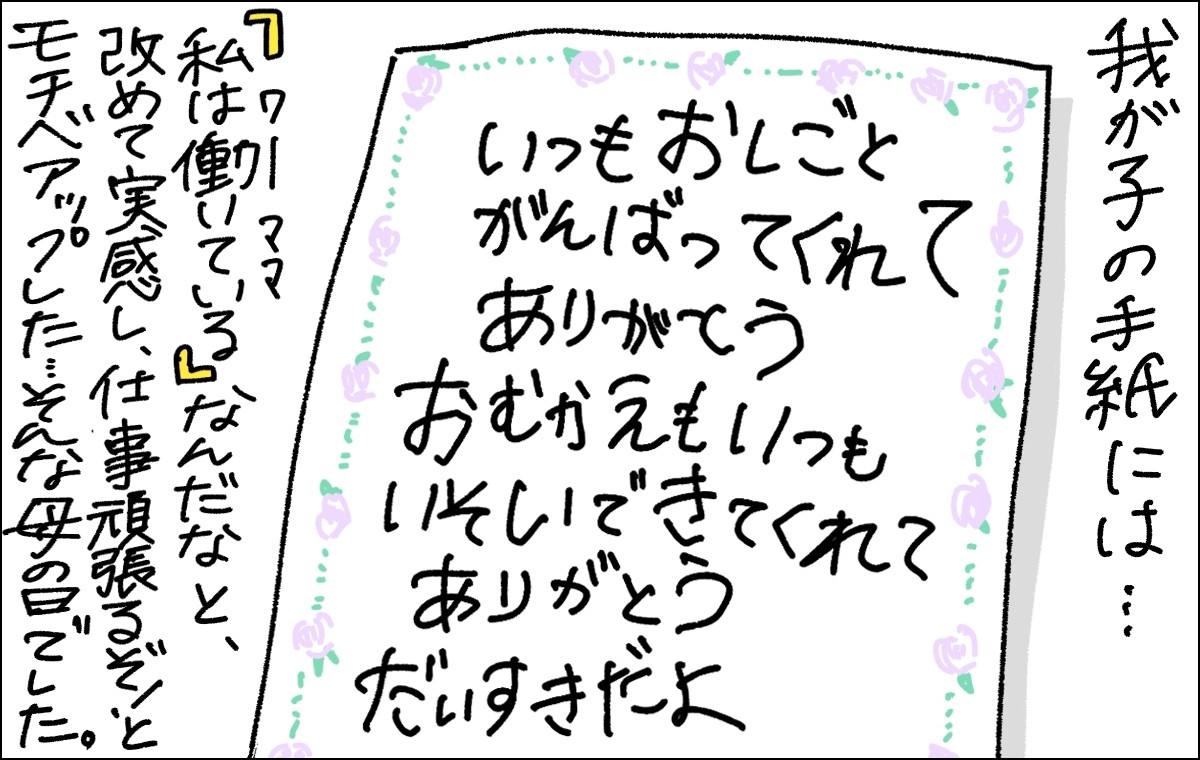 我が子の手紙には…
いつもおしごと
がんばってくれて
ありがてう
おむかえもいつも
いそいできてくれて
ありがとう
だいすきだよ
ワーママ
『私は働いている』なんだなと、
改めて実感し、仕事頑張るぞ!と
モチベアップした…そんな母の日でした。